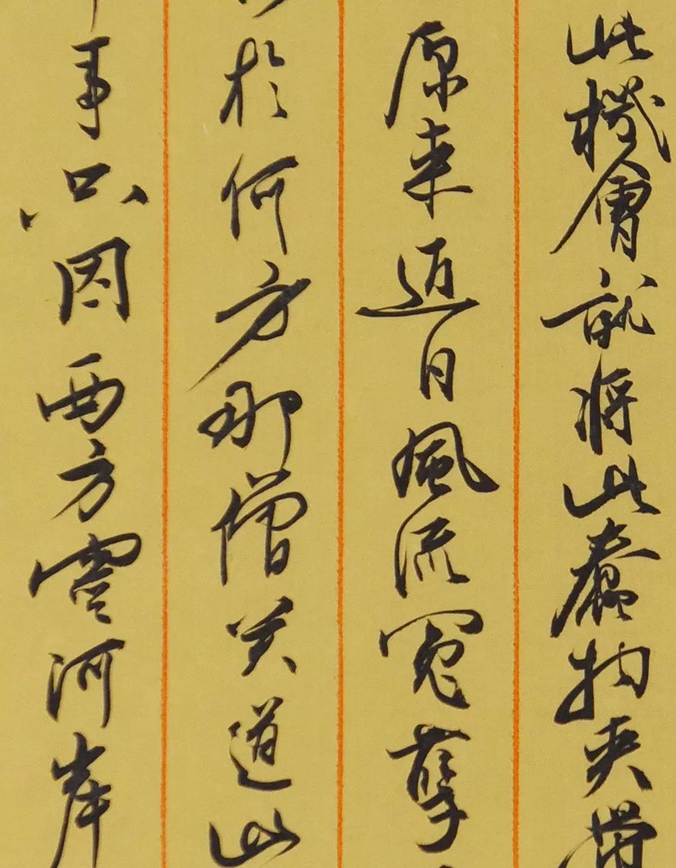 此機會就將此蠢物夾帶
原来近日風流冤孽
於何方那僧笑道此
事只因西方靈河岸